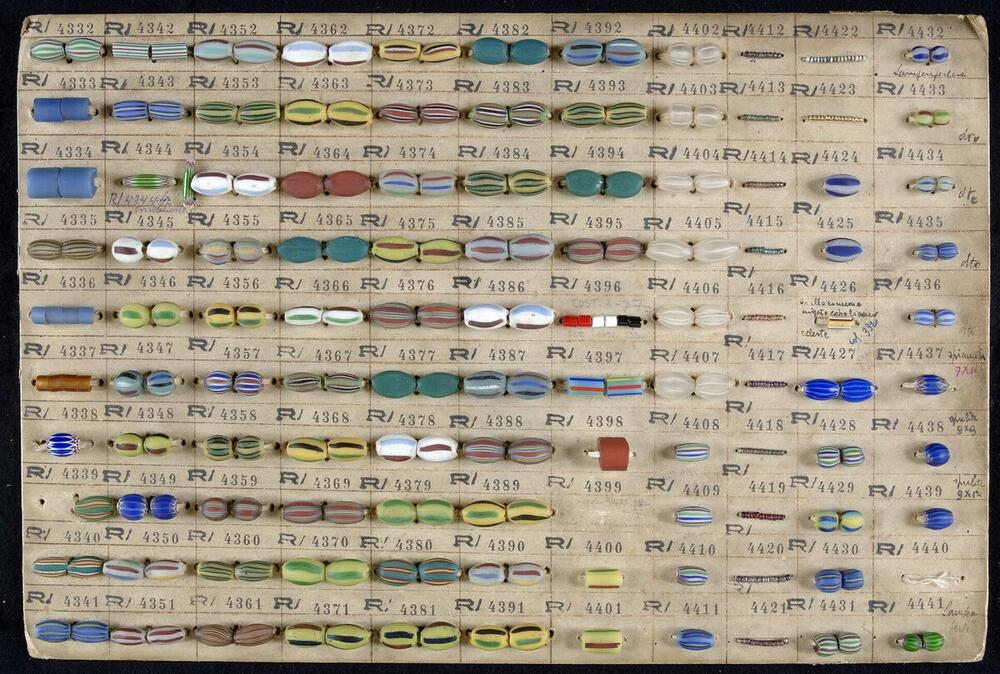 R/ 4332 R/ 4342 R/ 4352 R/ 4362 R/ 4372 R/ 4382 R/ 4392 R/ 4402 R/ 4412 R/ 4422 R/ 4432
R/ 4333 R/ 4343 R/ 4353 R/ 4363 R/ 4373 R/ 4383 R/ 4393 R/ 4403 R/ 4413 R/ 4423 R/ 4433
dto
R/ 4334 R/ 4344 R/ 4354 R/ 4364 R/ 4374 R/ 4384 R/ 4394 R/ 4404 R/ 4414 R/ 4424 R/ 4434
R/ 4335 R/ 4345 R/ 4355 R/ 4365 R/ 4375 R/ 4385 R/ 4395 R/ 4405 R/ 4415 R/ 4425 R/ 4435
dto
R/ 4336 R/ 4346 R/ 4356 R/ 4366 R/ 4376 R/ 4386 R/ 4396 R/ 4406 R/ 4416 R/ 4426 R/ 4436
celeste
R/ 4337 R/ 4347 R/ 4357 R/ 4367 R/ 4377 R/ 4387 R/ 4397 R/ 4407 R/ 4417 R/ 4427 R/ 4437
7X11
R/ 4338 R/ 4348 R/ 4358 R/ 4368 R/ 4378 R/ 4388 R/ 4398 R/ 4408 R/ 4418 R/ 4428 R/ 4438
9X9
R/ 4339 R/ 4349 R/ 4359 R/ 4369 R/ 4379 R/ 4389 R/ 4399 R/ 4409 R/ 4419 R/ 4429 R/ 4439
R/ 4340 R/ 4350 R/ 4360 R/ 4370 R/ 4380 R/ 4390 R/ 4400 R/ 4410 R/ 4420 R/ 4430 R/ 4440
R/ 4341 R/ 4351 R/ 4361 R/ 4371 R/ 4381 R/ 4391 R/ 4401 R/ 4411 R/ 4421 R/ 4431 R/ 4441